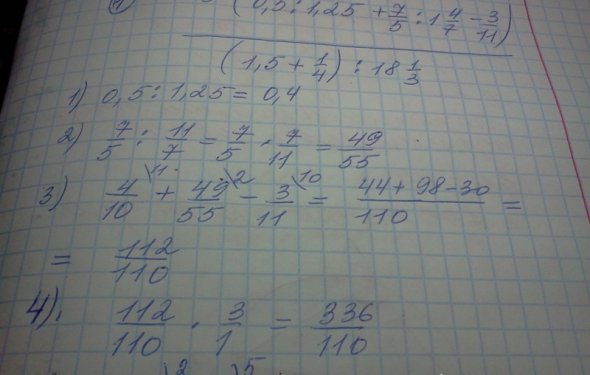 1) (0,5 : 1,25 + 7/5 : 1 4/7 - 3/11)
(1,5 + 1/4) : 18 1/3
1) 0,5 : 1,25 = 0,4
2) 7/5 : 11/7 = 7/5 · 7/11 = 49/55
3) 4/10 \11 + 49/55 \2 - 3/11 \10 = 44 + 98 - 30/110 =
= 112/110
4) 112/110 · 3/1 = 336/110
\2 \5